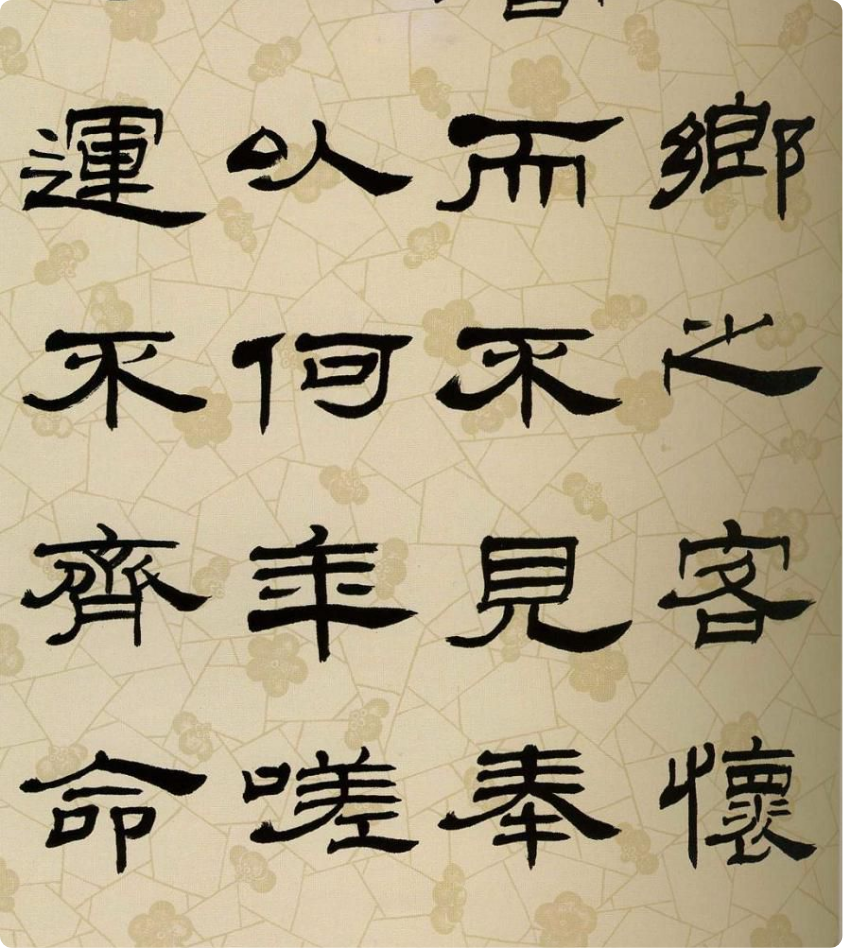 鄉之客懷
而不見奉
以何年嗟
運不齊命